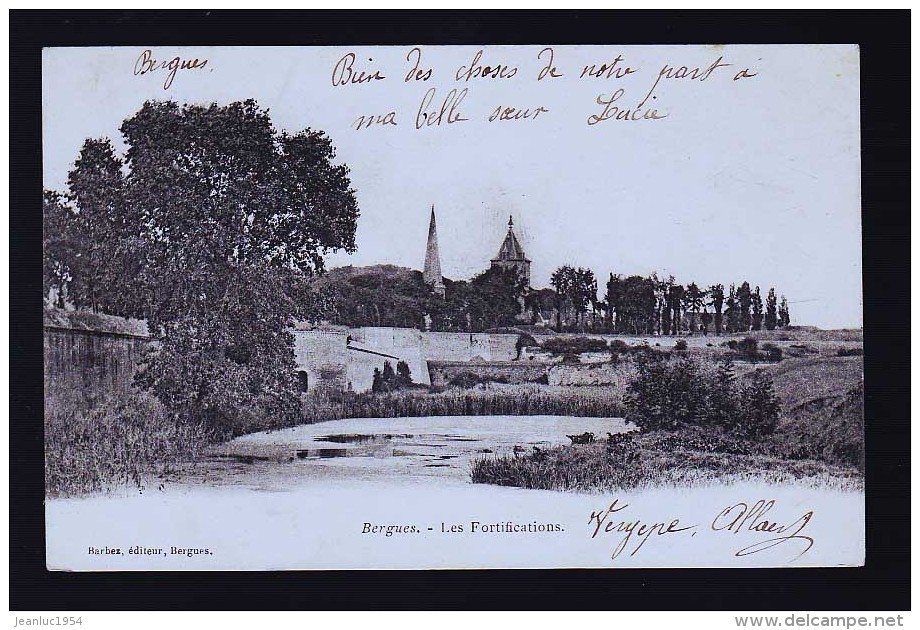 Bergues.
Bien des choses de notre part à
ma belle sœur Lucie
Bergues. - Les Fortifications.
Barbez, éditeur, Bergues.
jeanluc1954
www.delcampe.net